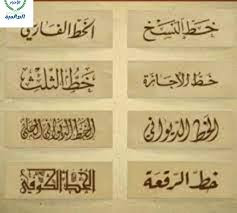 خط النسخ
الخط الفارسي
خط الإجازة
خط الثلث
الخط الديواني
الخط الديواني الجلي
خط الرقعة
الخط الكوفي